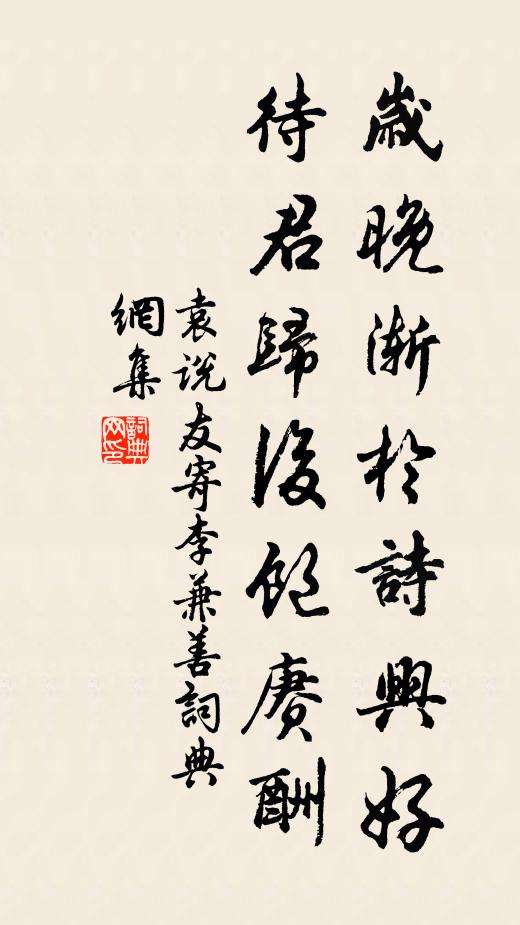 歲晚漸於詩興好
待君歸後飽賡酬
袁說友寄李兼善詞典
網集
詞典
网印